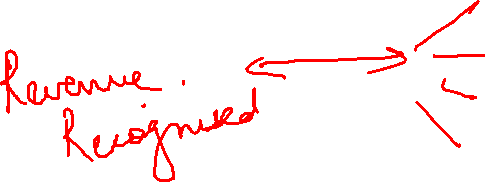 Revenue
Recognised